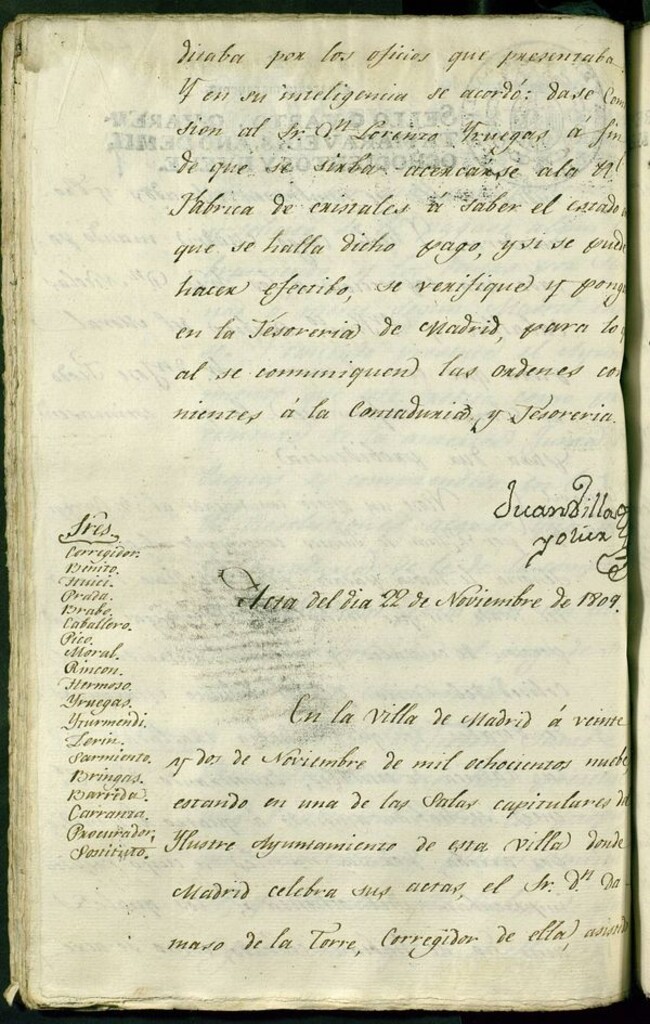 dicaba por los oficios que presentaba.
Y en su inteligencia se acordó: dase Comi
sion al Sr. Dn. Lorenzo Yruegas á fin
de que se sirba acercarse ala Rl.
Fábrica de cristales á saber el estado
que se halla dicho pago, y si se puede
hacer efectibo, se verifique y ponga
en la Tesoreria de Madrid, para lo q
al se comuniquen las ordenes co
nientes á la Contaduria y Tesoreria.
Juan Villa
y olier
Sres.
Corregidor.
Benito.
Huici.
Prada.
Brabo.
Caballero.
Pico.
Moral.
Rincon.
Hermoso.
Yruegas.
Yturmendi.
Lorin.
Sarmiento.
Bringas.
Barrida.
Carranza.
Procurador,
Sostituto.
Acta del dia 22 de Noviembre de 1809.
En la Villa de Madrid á veinte
y dos de Noviembre de mil ochocientos nuebe,
estando en una de las Salas capitulares del
Ylustre Ayuntamiento de esta Villa donde
Madrid celebra sus actas, el Sr. Dn. Da-
maso de la Torre, Corregidor de ella, asistido